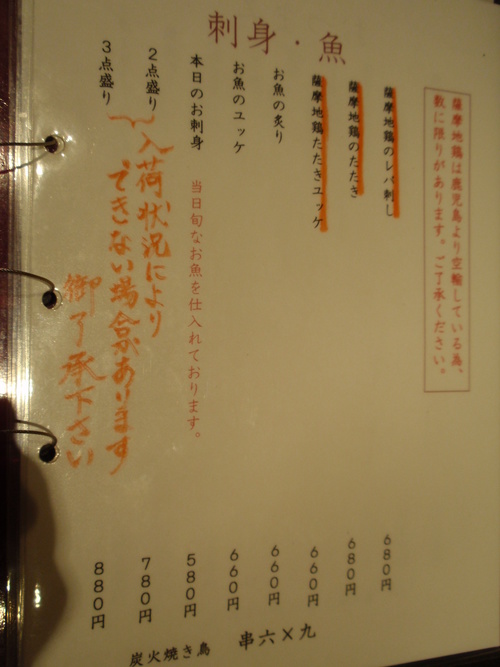 刺身・魚
薩摩地鶏は鹿児島より空輸している為、
数に限りがあります。ご了承ください。
薩摩地鶏のレバ刺し 680円
薩摩地鶏のたたき 680円
薩摩地鶏たたきユッケ 660円
お魚の炙り 660円
お魚のユッケ 660円
本日のお刺身 当日旬なお魚を仕入れております。 580円
2点盛り 780円
3点盛り 880円
入荷状況により
できない場合があります
御了承下さい
炭火焼き鳥 串六×九